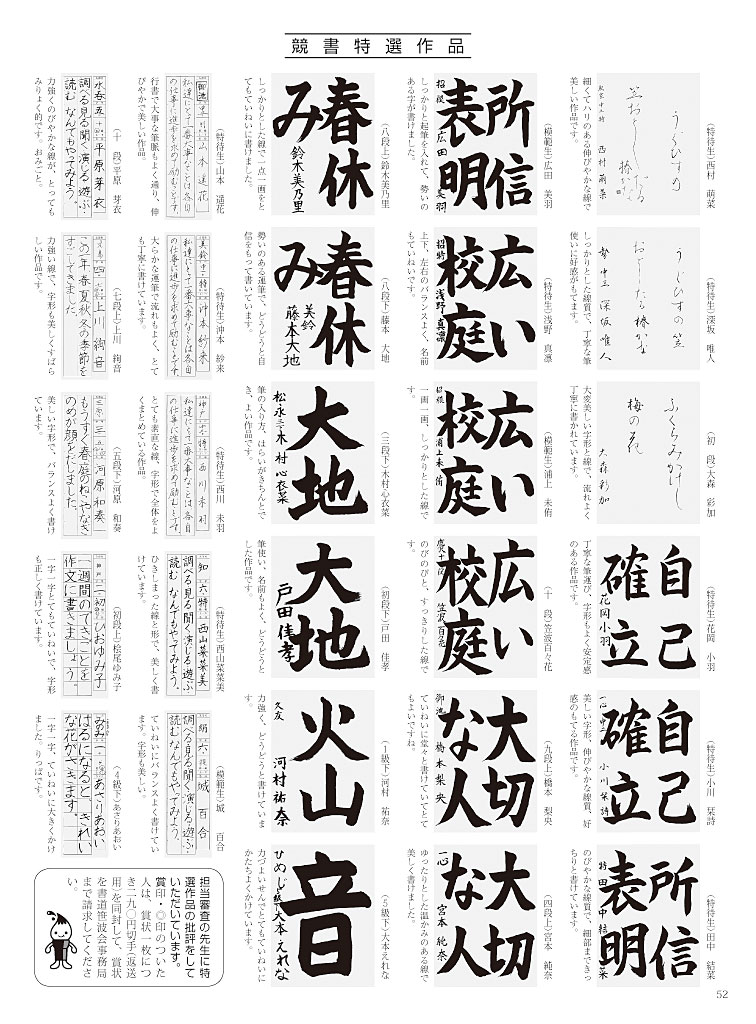 競書特選作品
（特待生）西村　萌菜
うぐひすの
笠おとしたる
椿かな
西村萌菜
細くてハリのある伸びやかな線で
美しい作品です。
（特待生）深坂　唯人
うぐひすの笠
おとしたる椿かな
深坂唯人
しっかりとした線質で、丁寧な筆
使いに好感がもてます。
（初　段）大森　彩加
ふくらみかけし
梅の花
大森彩加
大変美しい字形と線で、流れよく
丁寧に書かれています。
（特待生）花岡　小羽
自己
確立
花岡小羽
丁寧な筆運び、字形もよく安定感
のある作品です。
（特待生）小川　栞詩
自己
確立
一心　小川栞詩
美しい字形、伸びやかな線質、好
感のもてる作品です。
（特待生）田中　結菜
所信
表明
特　田中結菜
のびやかな線質で、細部まできっ
ちりと書けています。
（模範生）広田　美羽
所信
表明
招報　広田美羽
しっかりと起筆を入れて、勢いの
ある字が書けました。
（特待生）浅野　真凛
広い
校庭
招特　浅野真凛
上下、左右のバランスよく、名前
もていねいです。
（模範生）浦上　未侑
広い
校庭
浦上未侑
一画一画、しっかりとした線で
す。
（十　段）笠波百々花
広い
校庭
笠波百々花
のびのびと、すっきりした線で
す。
（九段上）橋本　梨央
大切
な人
御池　橋本梨央
ていねいに堂々と書けていてとて
もよいですね。
（四段上）宮本　純奈
大切
な人
一心　宮本純奈
ゆったりとした温かみのある線で
美しく書けました。
（八段上）鈴木美乃里
春休
み
鈴木美乃里
しっかりとした線で一点一画をと
てもていねいに書けました。
（八段下）藤本　大地
春休
み
美鈴
藤本大地
勢いのある運筆で、どうどうと自
信をもって書いています。
（三段下）木村心衣菜
大地
松永三　木村心衣菜
筆の入り方、はらいがきちんとで
き、よい作品です。
（初段下）戸田　佳孝
大地
戸田佳孝
筆使い、名前もよく、どうどうと
した作品です。
（１級下）河村　祐奈
火山
久友　河村祐奈
力強く、どうどうと書けていま
す。
（５級下）大本えれな
音
ひめじ　大本えれな
力づよいせんでとてもていねいに
かたちよくかけています。
（特待生）山本　遥花
御池　山本遥花
私達にとって一番大事なことは各自
の仕事に進歩を求めて励むことです。
行書で大事な筆脈もよく通り、伸
びやかで美しい作品。
（特待生）沖本　紗来
美鈴　沖本紗来
私達にとって一番大事なことは各自
の仕事に進歩を求めて励むことです。
大らかな運筆で流れもよく、とて
も丁寧に書けています。
（特待生）西川　未羽
西川未羽
私達にとって一番大事なことは各自
の仕事に進歩を求めて励むことです。
とても素直な線、字形で全体をよ
くまとめている作品。
（特待生）西山菜菜美
知　六　特　西山菜菜美
調べる見る聞く演じる遊ぶ
読む　なんでもやってみよう。
ひきしまった線と形で、美しく書
けています。
（模範生）城　百合
絹　六　城百合
調べる見る聞く演じる遊ぶ
読む　なんでもやってみよう。
ていねいにバランスよく書けてい
ます。字形も美しい。
（十　段）平原　芽衣
永春　五　十　平原芽衣
調べる見る聞く演じる遊ぶ
読む　なんでもやってみよう。
力強くのびやかな線が、とっても
みりょく的です。おみごと。
（七段上）上川　絢音
四　上川絢音
この年春夏秋冬の季節を
すごしてきました。
力強い線で、字形も美しくすばら
しい作品です。
（五段下）河原　和奏
三　五　河原和奏
もうすぐ春庭のねこやなぎ
のめが顔をだしました。
美しい字形で、バランスよく書け
ています。
（初段上）桧尾ゆみ子
二　初　ひおゆみ子
一週間のできごとを
作文に書きましょう。
一字一字とてもていねいで、字形
も正しく書けています。
（４級下）あさりあおい
みのみ　一　あさりあおい
はるになると、きれい
な花がさきます。
一字一字、ていねいに大きくかけ
ました。りっぱです。
担当審査の先生に特
選作品の批評をして
いただいています。
賞印・◎印のついた
人は、賞状一枚につ
き二九〇円切手（返送
用）を同封して、賞状
を書道笹波会事務局
まで請求してくださ
い。
52